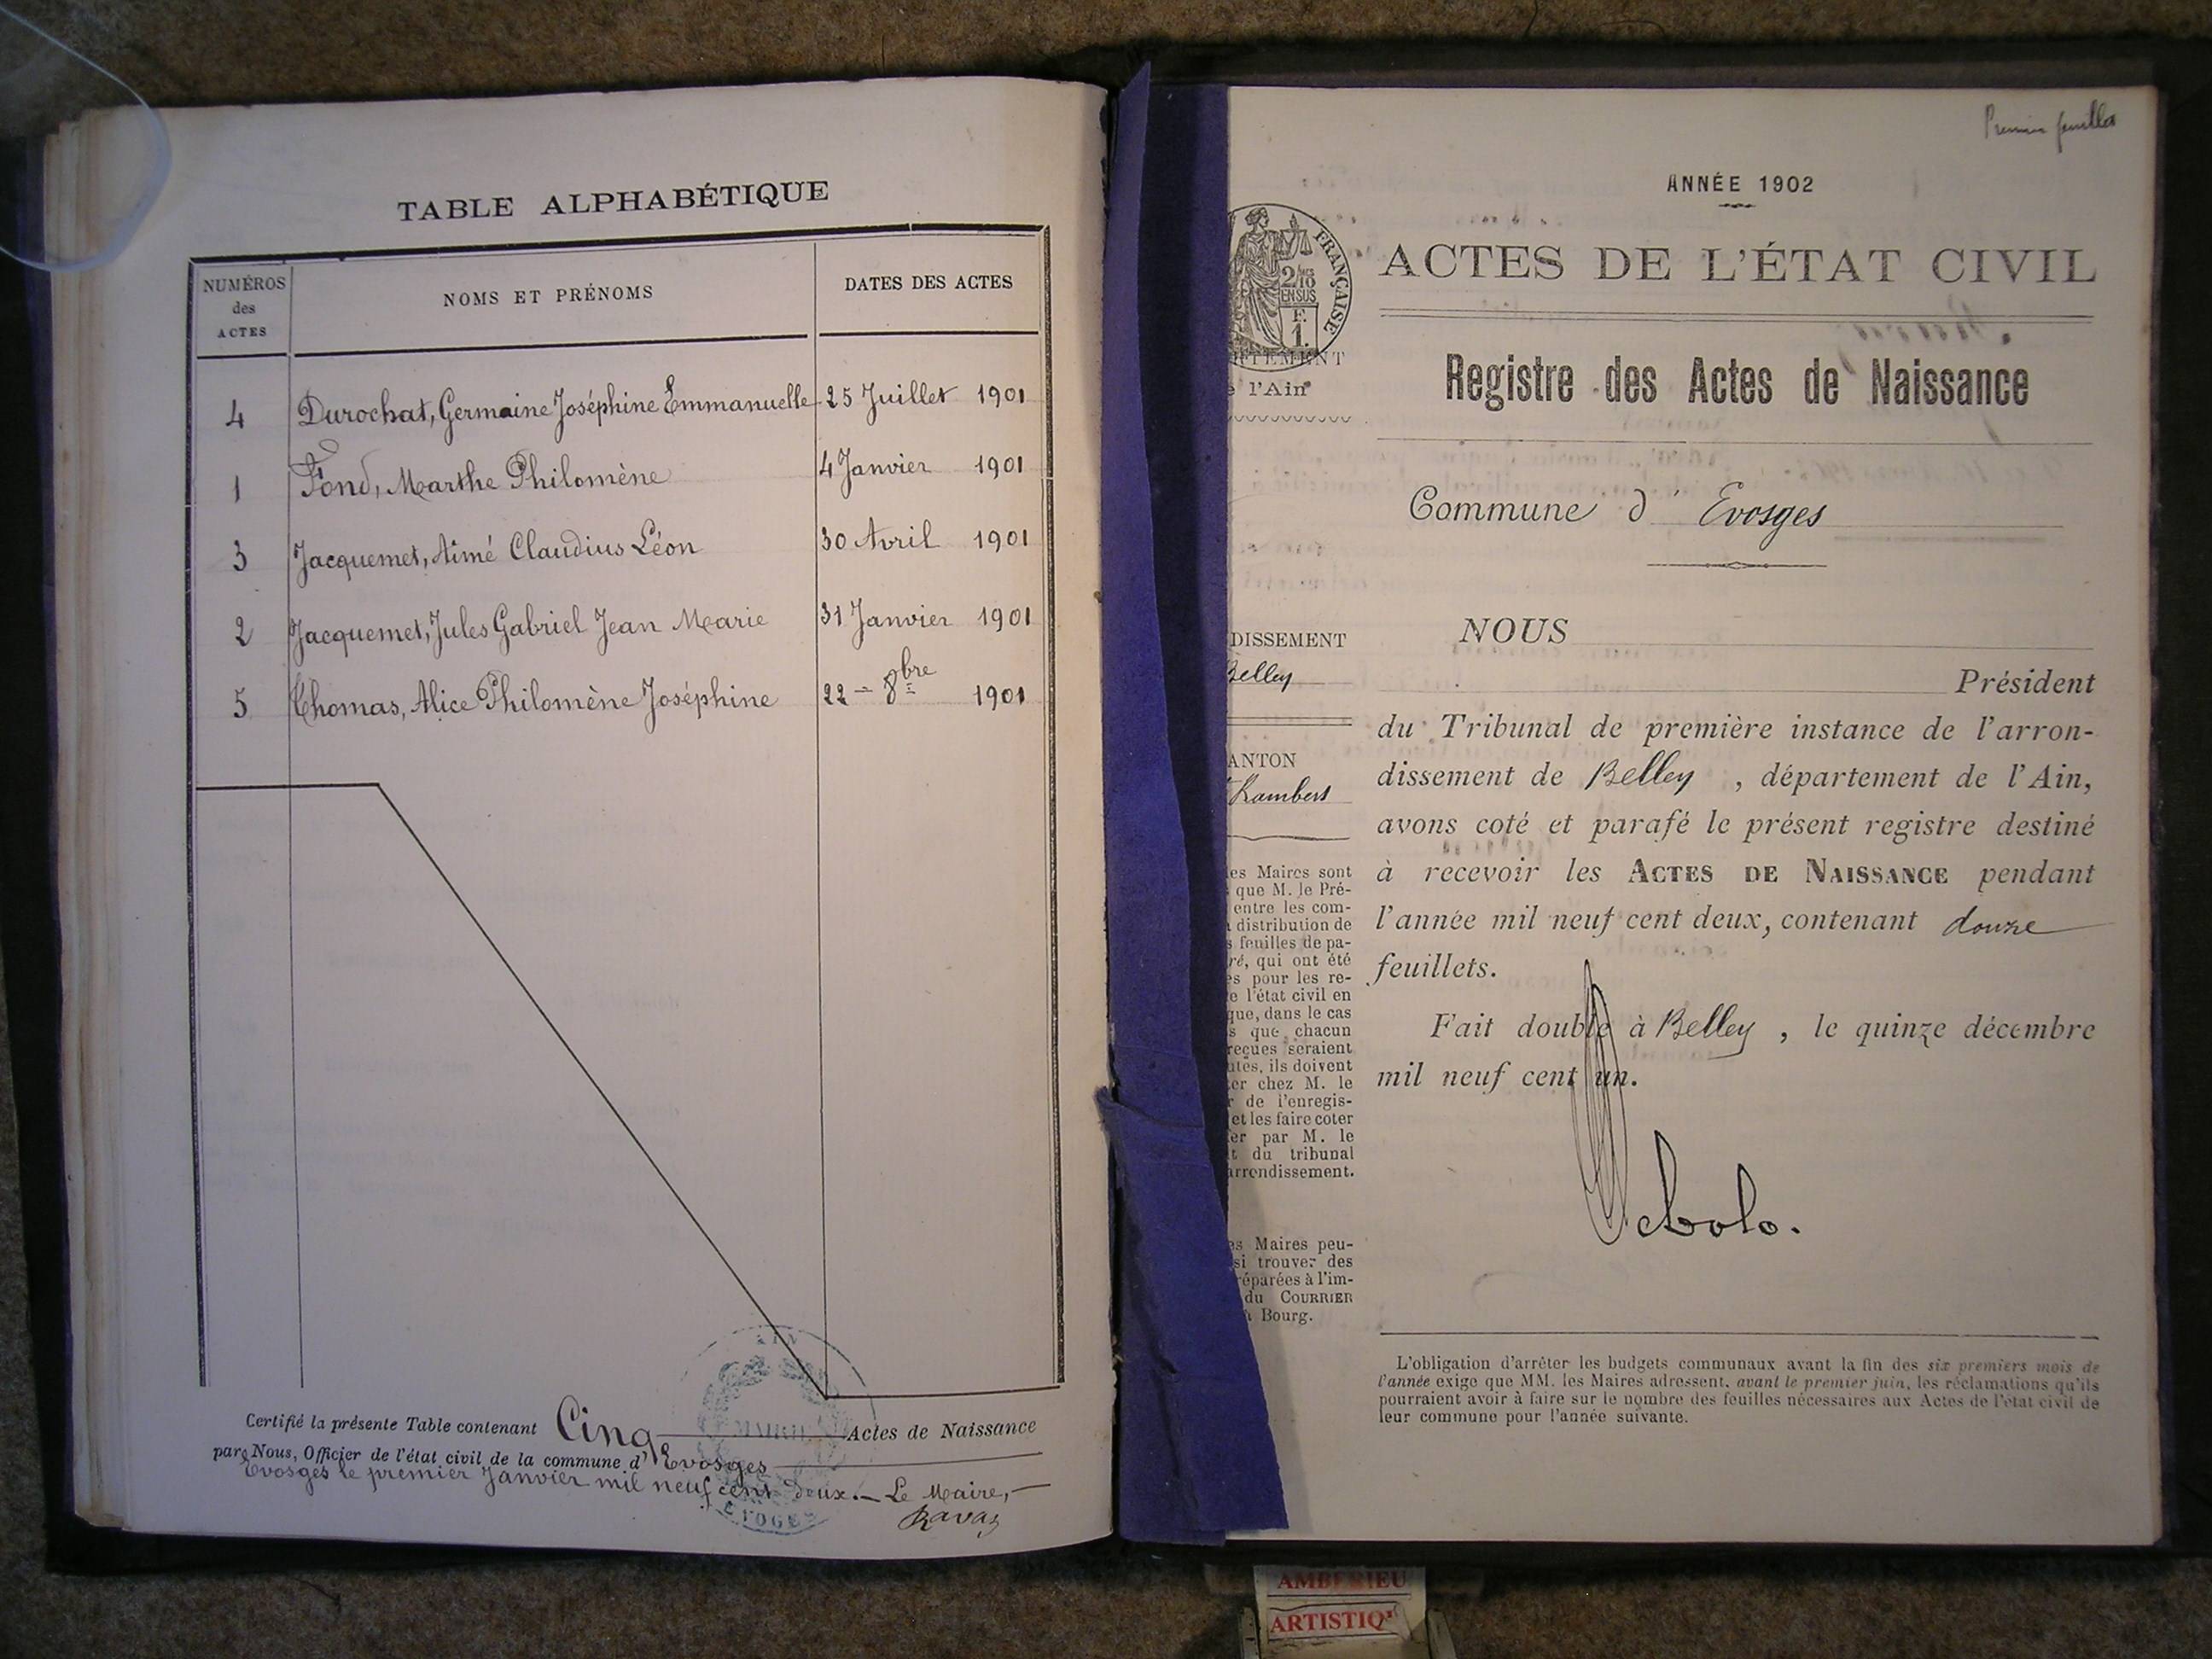 TABLE ALPHABÉTIQUE
NUMÉROS des ACTES
NOMS ET PRÉNOMS
DATES DES ACTES
4 Durochat, Germaine Joséphine Emmanuelle 25 Juillet 1901
1 Fond, Marthe Philomène 4 Janvier 1901
3 Jacquemet, Aimé Claudius Léon 30 Avril 1901
2 Jacquemet, Jules Gabriel Jean Marie 31 Janvier 1901
5 Thomas, Alice Philomène Joséphine 22 — 8bre 1901
Certifié la présente Table contenant Cinq Actes de Naissance
par Nous, Officier de l'état civil de la commune d'Evosges
Evosges le premier Janvier mil neuf cent deux. — Le Maire, —
Ravaz
MAIRIE
Premier feuillet
ANNÉE 1902
ACTES DE L'ÉTAT CIVIL
FRANÇAISE
2/10
EN SUS
F.
1.
l'Ain
Registre des Actes de Naissance
Commune d' Evosges
DISSEMENT
Belley
ANTON
Rambert
NOUS
Président
du Tribunal de première instance de l'arron-
dissement de Belley , département de l'Ain,
avons coté et parafé le présent registre destiné
à recevoir les ACTES DE NAISSANCE pendant
l'année mil neuf cent deux, contenant douze
feuillets.
Fait double à Belley , le quinze décembre
mil neuf cent un.
es Maires sont
que M. le Pré-
entre les com-
distribution de
feuilles de pa-
ré, qui ont été
es pour les re-
e l'état civil en
que, dans le cas
s que chacun
reçues seraient
utés, ils doivent
er chez M. le
r de l'enregis-
et les faire coter
er par M. le
t du tribunal
arrondissement.
es Maires peu-
si trouver des
réparées à l'im-
du COURRIER
à Bourg.
L'obligation d'arrêter les budgets communaux avant la fin des six premiers mois de
l'année exige que MM. les Maires adressent, avant le premier juin, les réclamations qu'ils
pourraient avoir à faire sur le nombre des feuilles nécessaires aux Actes de l'état civil de
leur commune pour l'année suivante.
AMBERIEU
ARTISTIQ